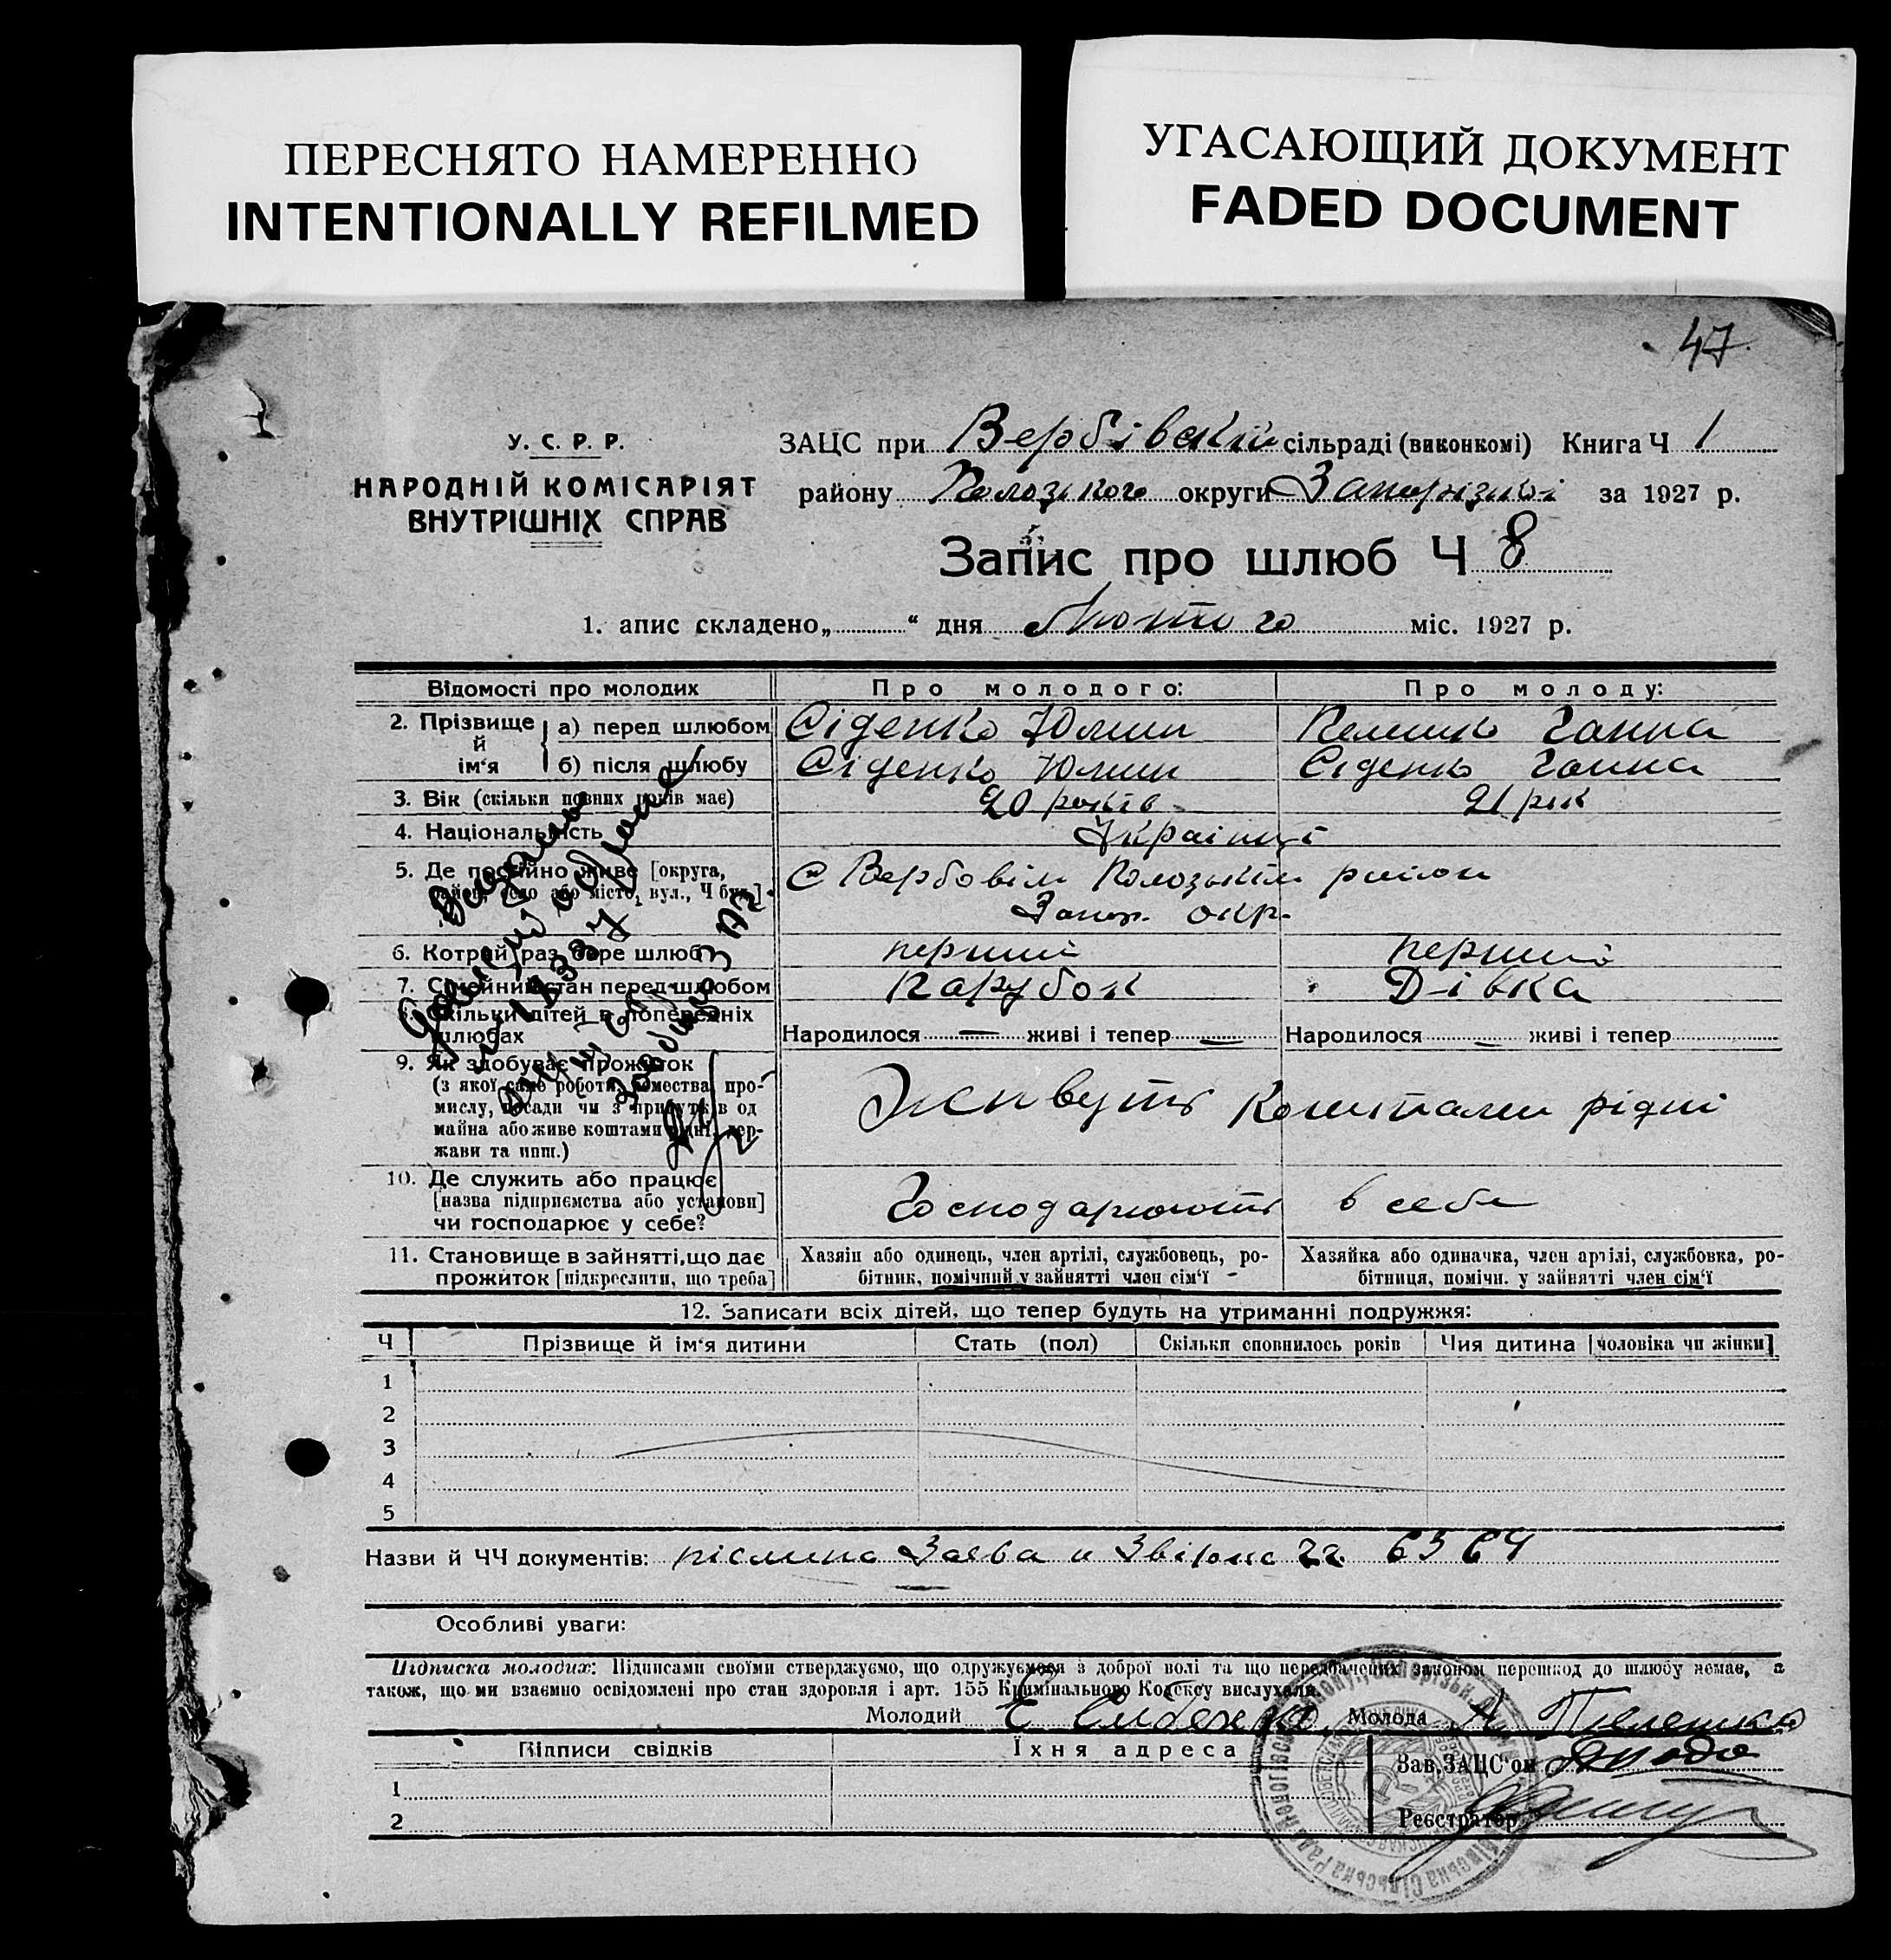 ПЕРЕСНЯТО НАМЕРЕННО
INTENTIONALLY REFILMED
УГАСАЮЩИЙ ДОКУМЕНТ
FADED DOCUMENT
47.
У. С. Р. Р.
НАРОДНІЙ КОМІСАРІЯТ
ВНУТРІШНІХ СПРАВ
ЗАЦС при Вербівскій сільраді (виконкомі) Книга Ч 1
району Пологського округи Запоріжській за 1927 р.
Запис про шлюб Ч 8
1. апис складено „ “ дня Лютого міс. 1927 р.
Відомості про молодих Про молодого: Про молоду:
2. Прізвище й ім'я а) перед шлюбом Сіденко Юлии Пелешко Ганна
б) після шлюбу Сіденко Юлии Сіденко Ганна
3. Вік (скільки повних років має) 20 років 21 рік
4. Національність Українці
5. Де постійно живе [округа, район, село або місто, вул., Ч буд.] С Вербовім Пологзьким район
Запор. окр.
6. Котрий раз бере шлюб перший перший
7. Сімейний стан перед шлюбом парубок Дівка
8. Скільки дітей в попередніх шлюбах Народилося — живі і тепер — Народилося — живі і тепер
9. Як здобуває прожиток
(з якої саме роботи, ремества, про-
мислу, посади чи з прибутків од
майна або живе коштами рідні, дер-
жави та инш.) Живуть Коштами рідні
10. Де служить або працює
[назва підприємства або установи]
чи господарює у себе? Господарюють в себе
11. Становище в зайнятті, що дає
прожиток [підкреслити, що треба]
Хазяін або одинець, член артілі, службовець, ро-
бітник, помічний у зайнятті член сім'ї -
Хазяйка або одиначка, член артілі, службовка, ро-
бітниця, помічн. у зайнятті член сім'ї
12. Записати всіх дітей, що тепер будуть на утриманні подружжя:
Ч Прізвище й ім'я дитини Стать (пол) Скільки сповнилось років Чия дитина [чоловіка чи жінки]
1
2
3
4
5
Назви й ЧЧ документів: 63 64
Особливі уваги:
Підписка молодих: Підписами своїми стверджуємо, що одружуємося з доброї волі та що передбачених законом перешкод до шлюбу немає, а
також, що ми взаємно освідомлені про стан здоровля і арт. 155 Кримінального Кодексу вислухали.
Молодий Е Сиденко Молода А. Пелешко
Підписи свідків Їхня адреса
Зав. ЗАЦС'ом
1
Реєстратор
2